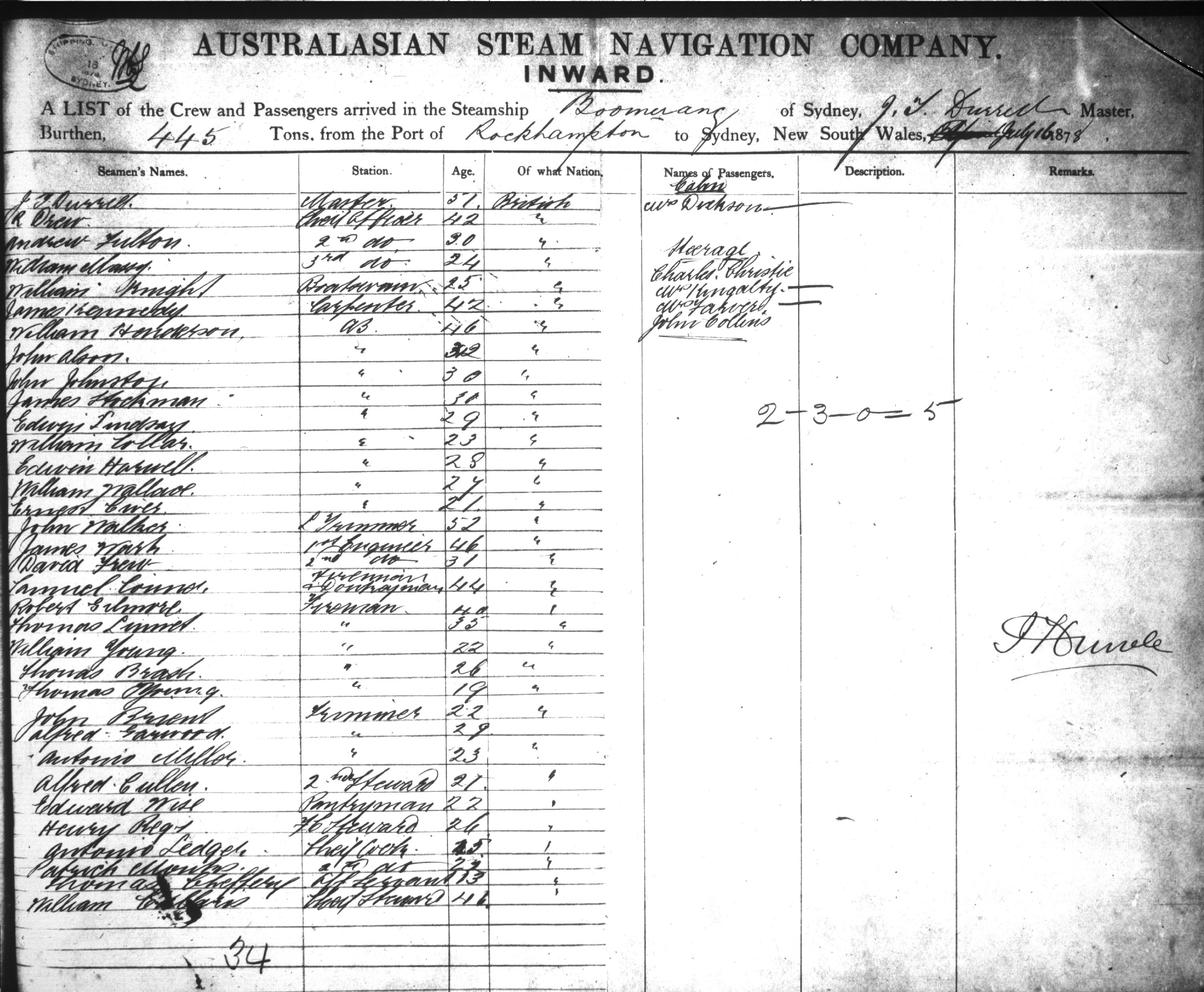 SHIPPING
18
SYDNEY
AUSTRALASIAN STEAM NAVIGATION COMPANY.
INWARD.
A LIST of the Crew and Passengers arrived in the Steamship Boomerang of Sydney, J. T. Durrell Master,
Burthen, 445 Tons, from the Port of Rockhampton to Sydney, New South Wales, July 16 1878.
Seamen's Names. Station. Age. Of what Nation. Names of Passengers. Description. Remarks.
Cabin
J T Durrell. Master. 51. British Mrs Dickson
R Drew Cheif Officer 42 "
Andrew Fulton. 2nd do 30 " Steerage
William 3rd do 24 " Charles Christie
William Knight Boatswain 25 " Mrs
James Kennedy Carpenter 42 " Mrs
William Henderson, AB. 46 " John Collins
John " "
John Johnston, " 30 "
James Stockman " 30 "
Edwin Lindsay. " 29 " 2-3-0=5
William Collar. " 23 "
Edwin Harwell. " 28 "
William Wallace. " 27 "
Ernest " 21. "
John Walker Trimmer 52 "
James 1st Engineer 46 "
David Frew 2nd do 31 "
Samuel Fireman & Donkeyman 44 "
Robert Gilmore. Fireman. 40 "
Thomas " 35 "
William Young. " 22 "
Thomas " 26 "
Thomas Young. " 19 "
John Trimmer 22 "
Alfred Garwood. " 29
Antonio Miller. " 23 "
Alfred Cullen. 2nd Steward 21 "
Edward Wise Pantryman 22 "
Henry Steward 26 "
Antonio Ledger. Cheif Cook. 25 "
Patrick 2nd do "
Thomas 13 "
William Cheif Steward "
34